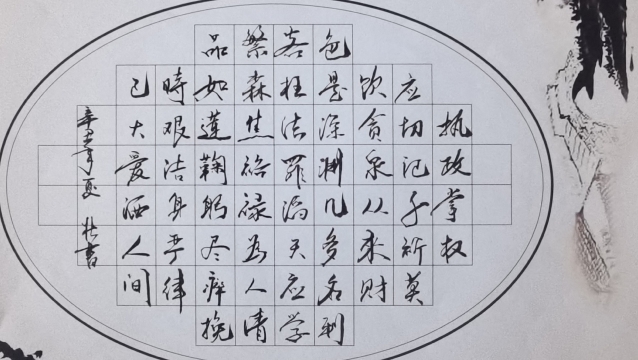 执政掌权
应切记千祈莫
饮贪泉从来财
色是深渊几多名利
客枉法罪滔天应学
繁森焦裕禄为人清
品如莲鞠躬尽瘁挽
時艰洁身严律
己大爱洒人间
辛丑年夏 书